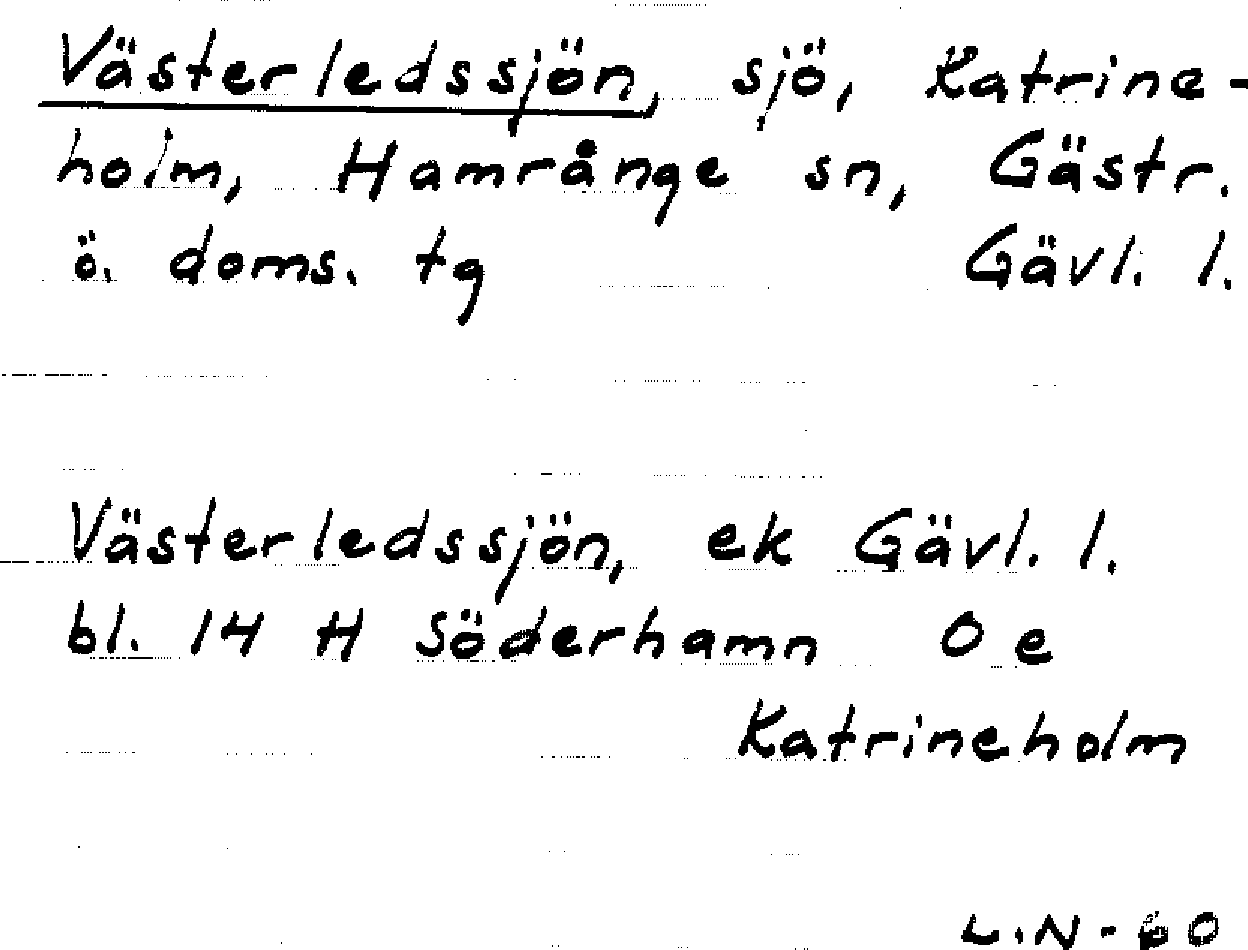 Västerledssjön, sjö, Katrine-
holm, Hamrånge sn, Gästr.
ö. doms. tg Gävl. l.
Västerledssjön, ek Gävl. l.
bl. 14 H Söderhamn O e
Katrineholm
L.N-60